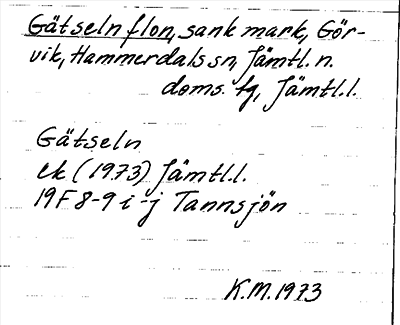 Gätseln flon, sank mark, Gör-
vik, Hammerdals sn, Jämtl. n.
doms. tg, Jämtl.l.
Gätseln
ek (1973) Jämtl.l.
19F 8-9 i-j Tannsjön
K.M. 1973